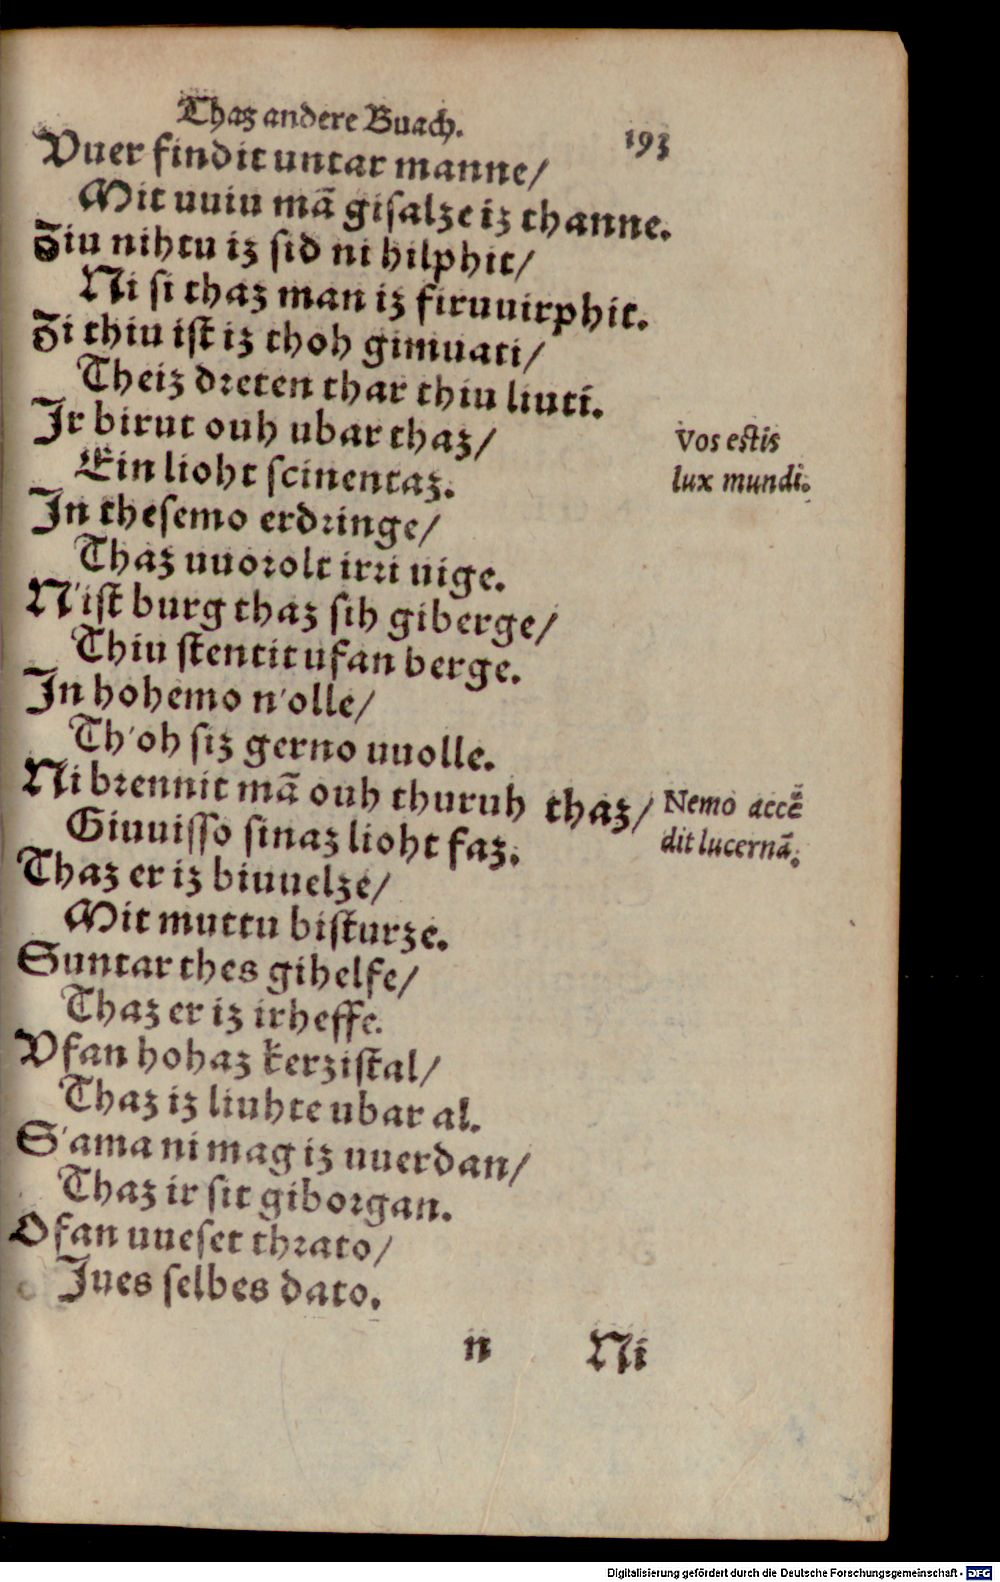 Thaz andere Buach.
193
Vuer findit untar manne/
Mit uuiu mã gisalze iz thanne.
Ziu nihtu iz sid ni hilphit/
Ni si thaz man iz firuuirphit.
Zi thiu ist iz thoh gimuati/
Theiz dreten thar thiu liuti.
Ir birut ouh ubar thaz/
Ein lioht scinentaz.
Vos estis
lux mundi.
In thesemo erdringe/
Thaz uuorolt irri uige.
N'ist burg thaz sih giberge/
Thiu stentit ufan berge.
In hohemo n'olle/
Th'oh siz gerno uuolle.
Ni brennit mã ouh thuruh thaz/
Giuuisso sinaz lioht faz.
Nemo accẽ
dit lucernã.
Thaz er iz biuuelze/
Mit muttu bisturze.
Suntar thes gihelfe/
Thaz er iz irheffe.
Vfan hohaz kerzistal/
Thaz iz liuhte ubar al.
S'ama ni mag iz uuerdan/
Thaz ir sit giborgan.
Ofan uueset thrato/
Iues selbes dato.
n
Ni
Digitalisierung gefördert durch die Deutsche Forschungsgemeinschaft - DFG